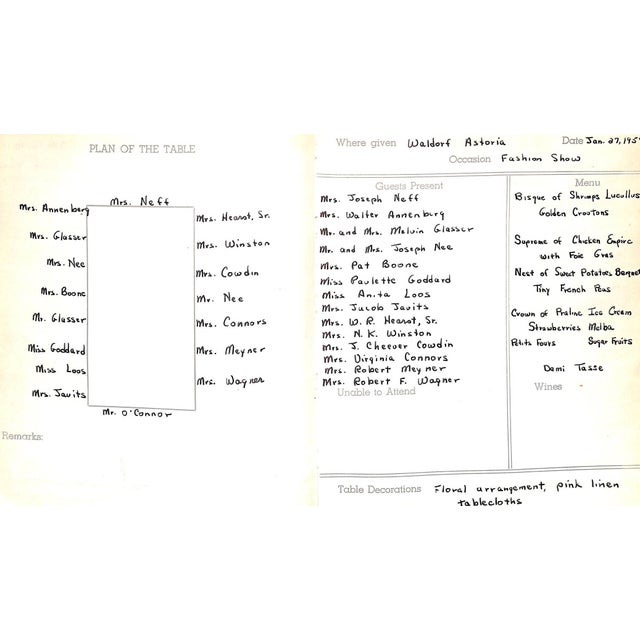 PLAN OF THE TABLE
Mrs. Neff
Mrs. Annenberg
Mrs. Glasser
Mrs. Nee
Mrs. Boone
Mr. Glasser
Miss Goddard
Miss Loos
Mrs. Javits
Mrs. Hearst, Sr.
Mrs. Winston
Mrs. Cowdin
Mr. Nee
Mrs. Connors
Mrs. Meyner
Mrs. Wagner
Mr. O'Connor
Remarks:
Where given Waldorf Astoria Date Jan. 27, 195
Occasion Fashion Show
Guests Present
Mrs. Joseph Neff
Mrs. Walter Annenberg
Mr. and Mrs. Melvin Glasser
Mr. and Mrs. Joseph Nee
Mrs. Pat Boone
Miss Paulette Goddard
Miss Anita Loos
Mrs. Jacob Javits
Mrs. W. R. Hearst, Sr.
Mrs. N. K. Winston
Mrs. J. Cheever Cowdin
Mrs. Virginia Connors
Mrs. Robert Meyner
Mrs. Robert F. Wagner
Unable to Attend
Menu
Bisque of Shrimps Lucullus
Golden Croutons
Supreme of Chicken Empire
with Foie Gras
Nest of Sweet Potatoes
Tiny French Peas
Crown of Praline Ice Cream
Strawberries Melba
Petits Fours Sugar Fruits
Demi Tasse
Wines
Table Decorations Floral arrangement, pink linen
tablecloths